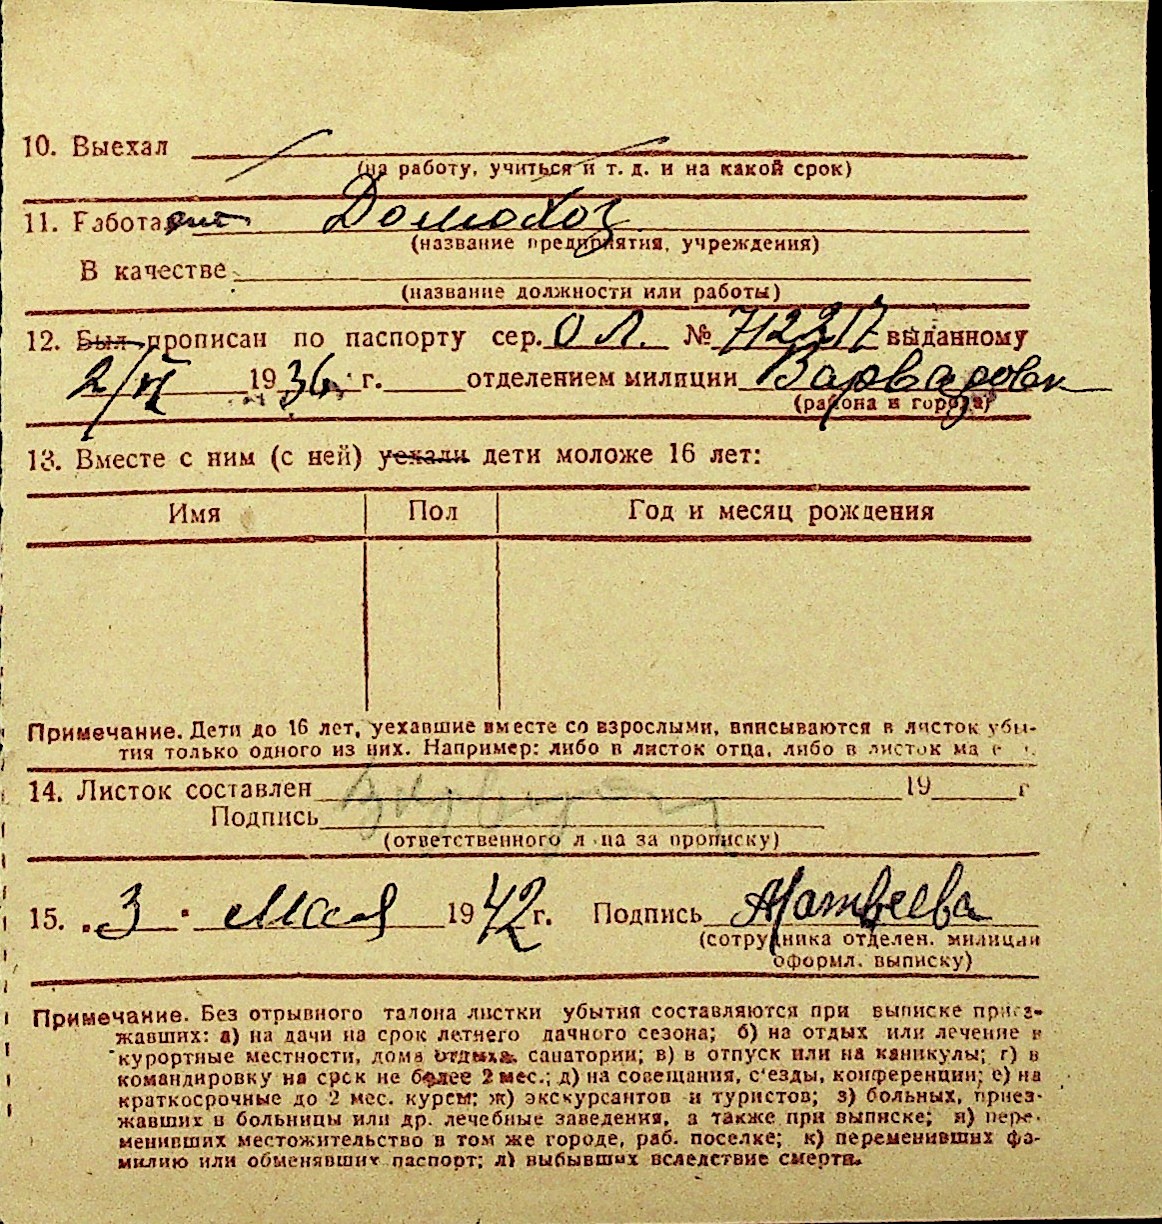 10. Выехал
(на работу, учиться и т. д. и на какой срок)
11. Работает Домохоз
(название предприятия, учреждения)
В качестве
(название должности или работы)
12. Был прописан по паспорту сер. ОЛ. № 712217 выданному
2/VI 1936 г. отделением милиции Варваровск
(района и города)
13. Вместе с ним (с ней) уехали дети моложе 16 лет:
Имя Пол Год и месяц рождения
Примечание. Дети до 16 лет, уехавшие вместе со взрослыми, вписываются в листок убы-
тия только одного из них. Например: либо в листок отца, либо в листок ма
14. Листок составлен 19 г
Подпись
(ответственного лица за прописку)
15. „3" Мая 1942 г. Подпись Матвеева
(сотрудника отделен. милиции
оформл. выписку)
Примечание. Без отрывного талона листки убытия составляются при выписке приез-
жавших: а) на дачи на срок летнего дачного сезона; б) на отдых или лечение в
курортные местности, дома отдыха, санатории; в) в отпуск или на каникулы; г) в
командировку на срок не более 2 мес.; д) на совещания, с'езды, конференции; е) на
краткосрочные до 2 мес. курсы; ж) экскурсантов и туристов; з) больных, приез-
жавших в больницы или др. лечебные заведения, а также при выписке; и) пере-
менивших местожительство в том же городе, раб. поселке; к) переменивших фа-
милию или обменявших паспорт; л) выбывших вследствие смерти.